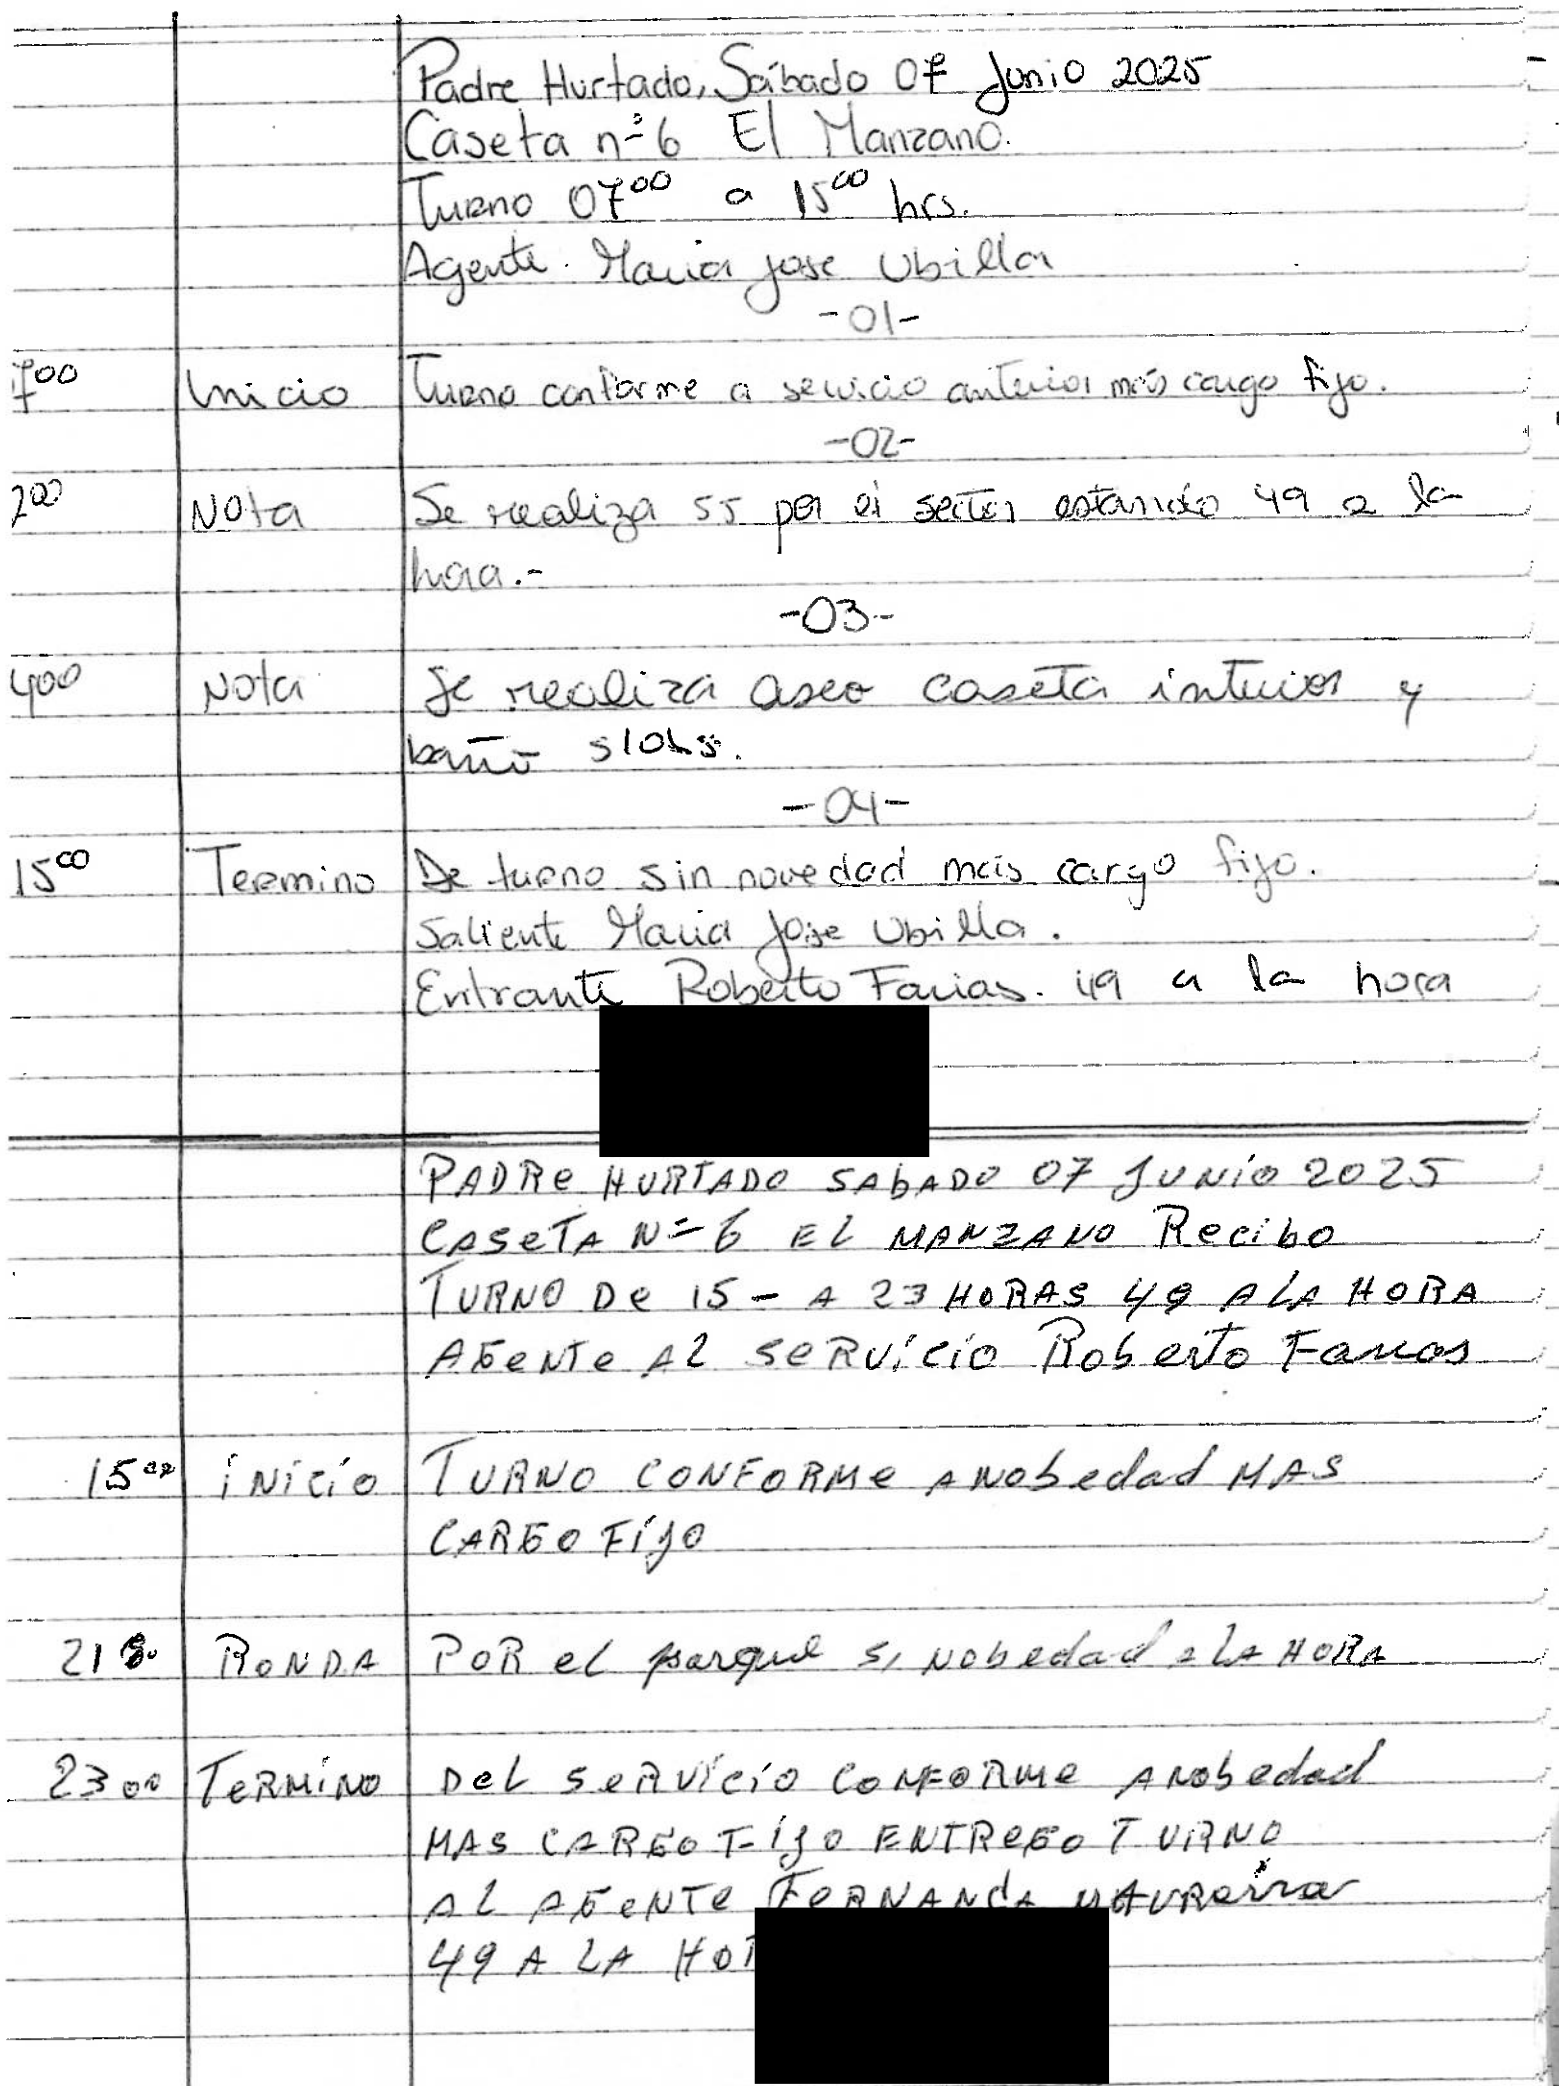 Padre Hurtado, Sábado 07 Junio 2025
Caseta n°6 El Manzano.
Turno 07⁰⁰ a 15⁰⁰ hrs.
Agente. Maria jose Ubilla
-01-
700 Inicio Turno conforme a servicio anterior más cargo fijo.
-02-
200 Nota Se realiza 55 por el sector estando 49 a la
hora.-
-03-
400 Nota Se realiza aseo caseta interior y
baño s/obs.
-04-
15⁰⁰ Termino De turno sin novedad más cargo fijo.
Saliente Maria Jose Ubilla.
Entrante Roberto Farias. 49 a la hora
PADRE HURTADO SABADO 07 JUNIO 2025
CASETA N=6 EL MANZANO Recibo
TURNO De 15 - A 23 HORAS 49 A LA HORA
AGENTE AL SERVICIO Roberto Farias
15⁰⁰ INICIO TURNO CONFORME A NObedad MAS
CARGO FIJO
21 RONDA POR el parque S, NObedad a LA HORA
23 00 TERMINO Del SERVICIO CONFORME A NObedad
MAS CARGO FIJO ENTREGO TURNO
AL AGENTE FERNANDA MAUREIRA
49 A LA HOR